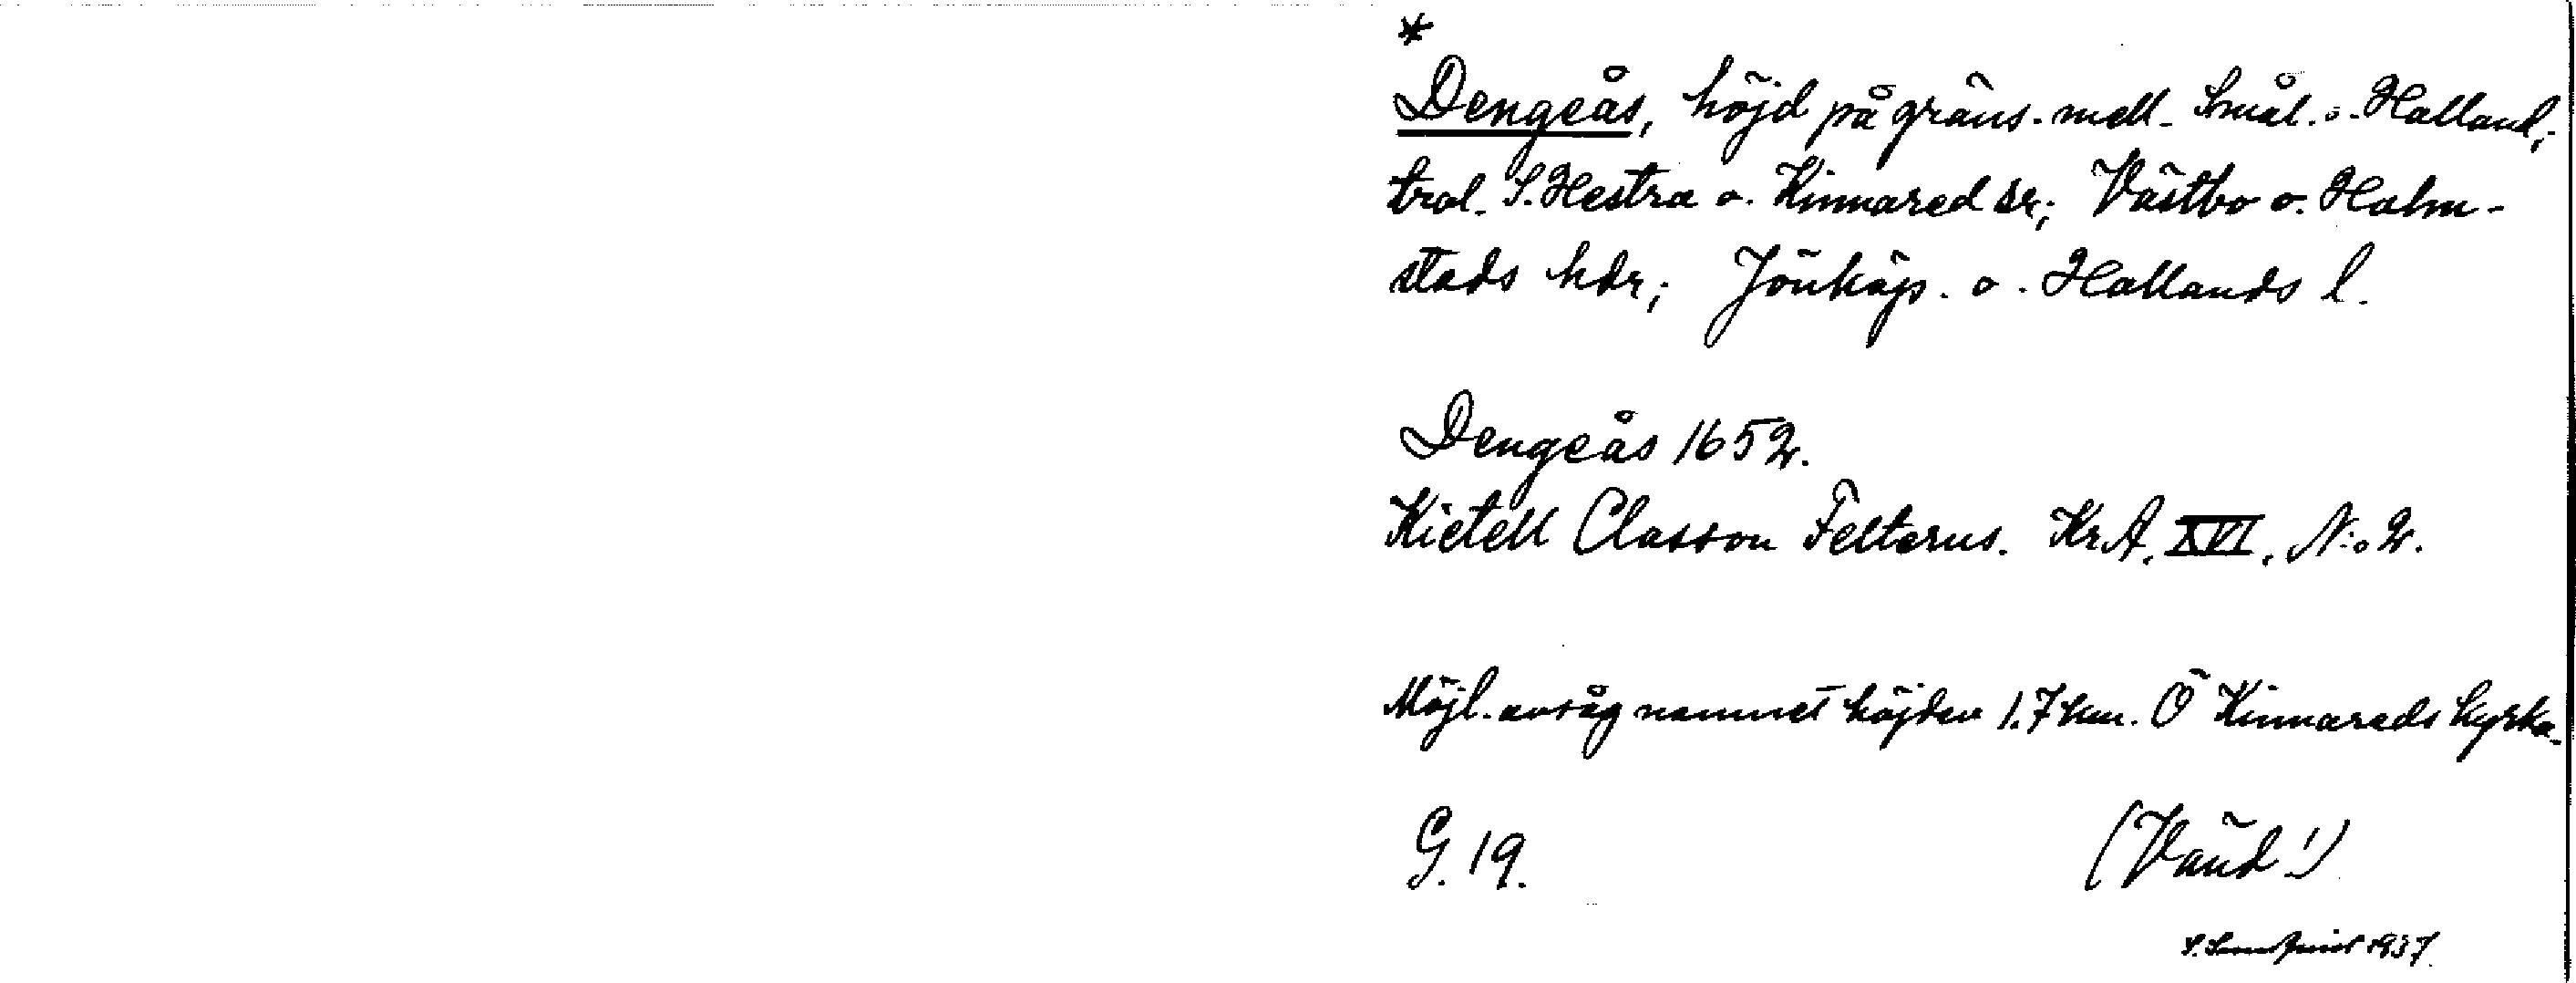 *
Dengeås, höjd på gräns. mell. Smål. o. Halland,
trol. S. Hestra o. Kinnared sr; Västbo o. Halm-
stads hdr; Jönköp. o. Hallands l.
Dengeås 1652.
Kietell Classon Felterus. KrA. XVI. N:o 2.
Möjl. avsåg namnet höjden 1.7 km. Ö Kinnareds kyrka.
G. 19.
(Vänd!)
1937.